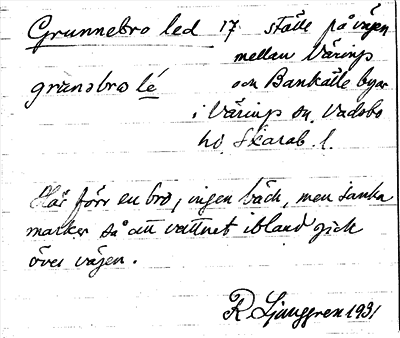 Grunnebro led 17. ställe på vägen
mellan Väring
grunəbro lé
och Bankälla byar
i Väring sn, Vadsbo
hd Skarab. l.
Här förr en bro, ingen bäck, men sanka
marker så att vattnet ibland gick
över vägen.
R. Ljunggren 1931